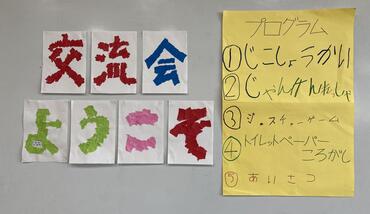 交流会
ようこそ
プログラム
①じこしょうかい
②じゃんけん
③ジェスチャーゲーム
④トイレットペーパー
ころがし
⑤あいさつ